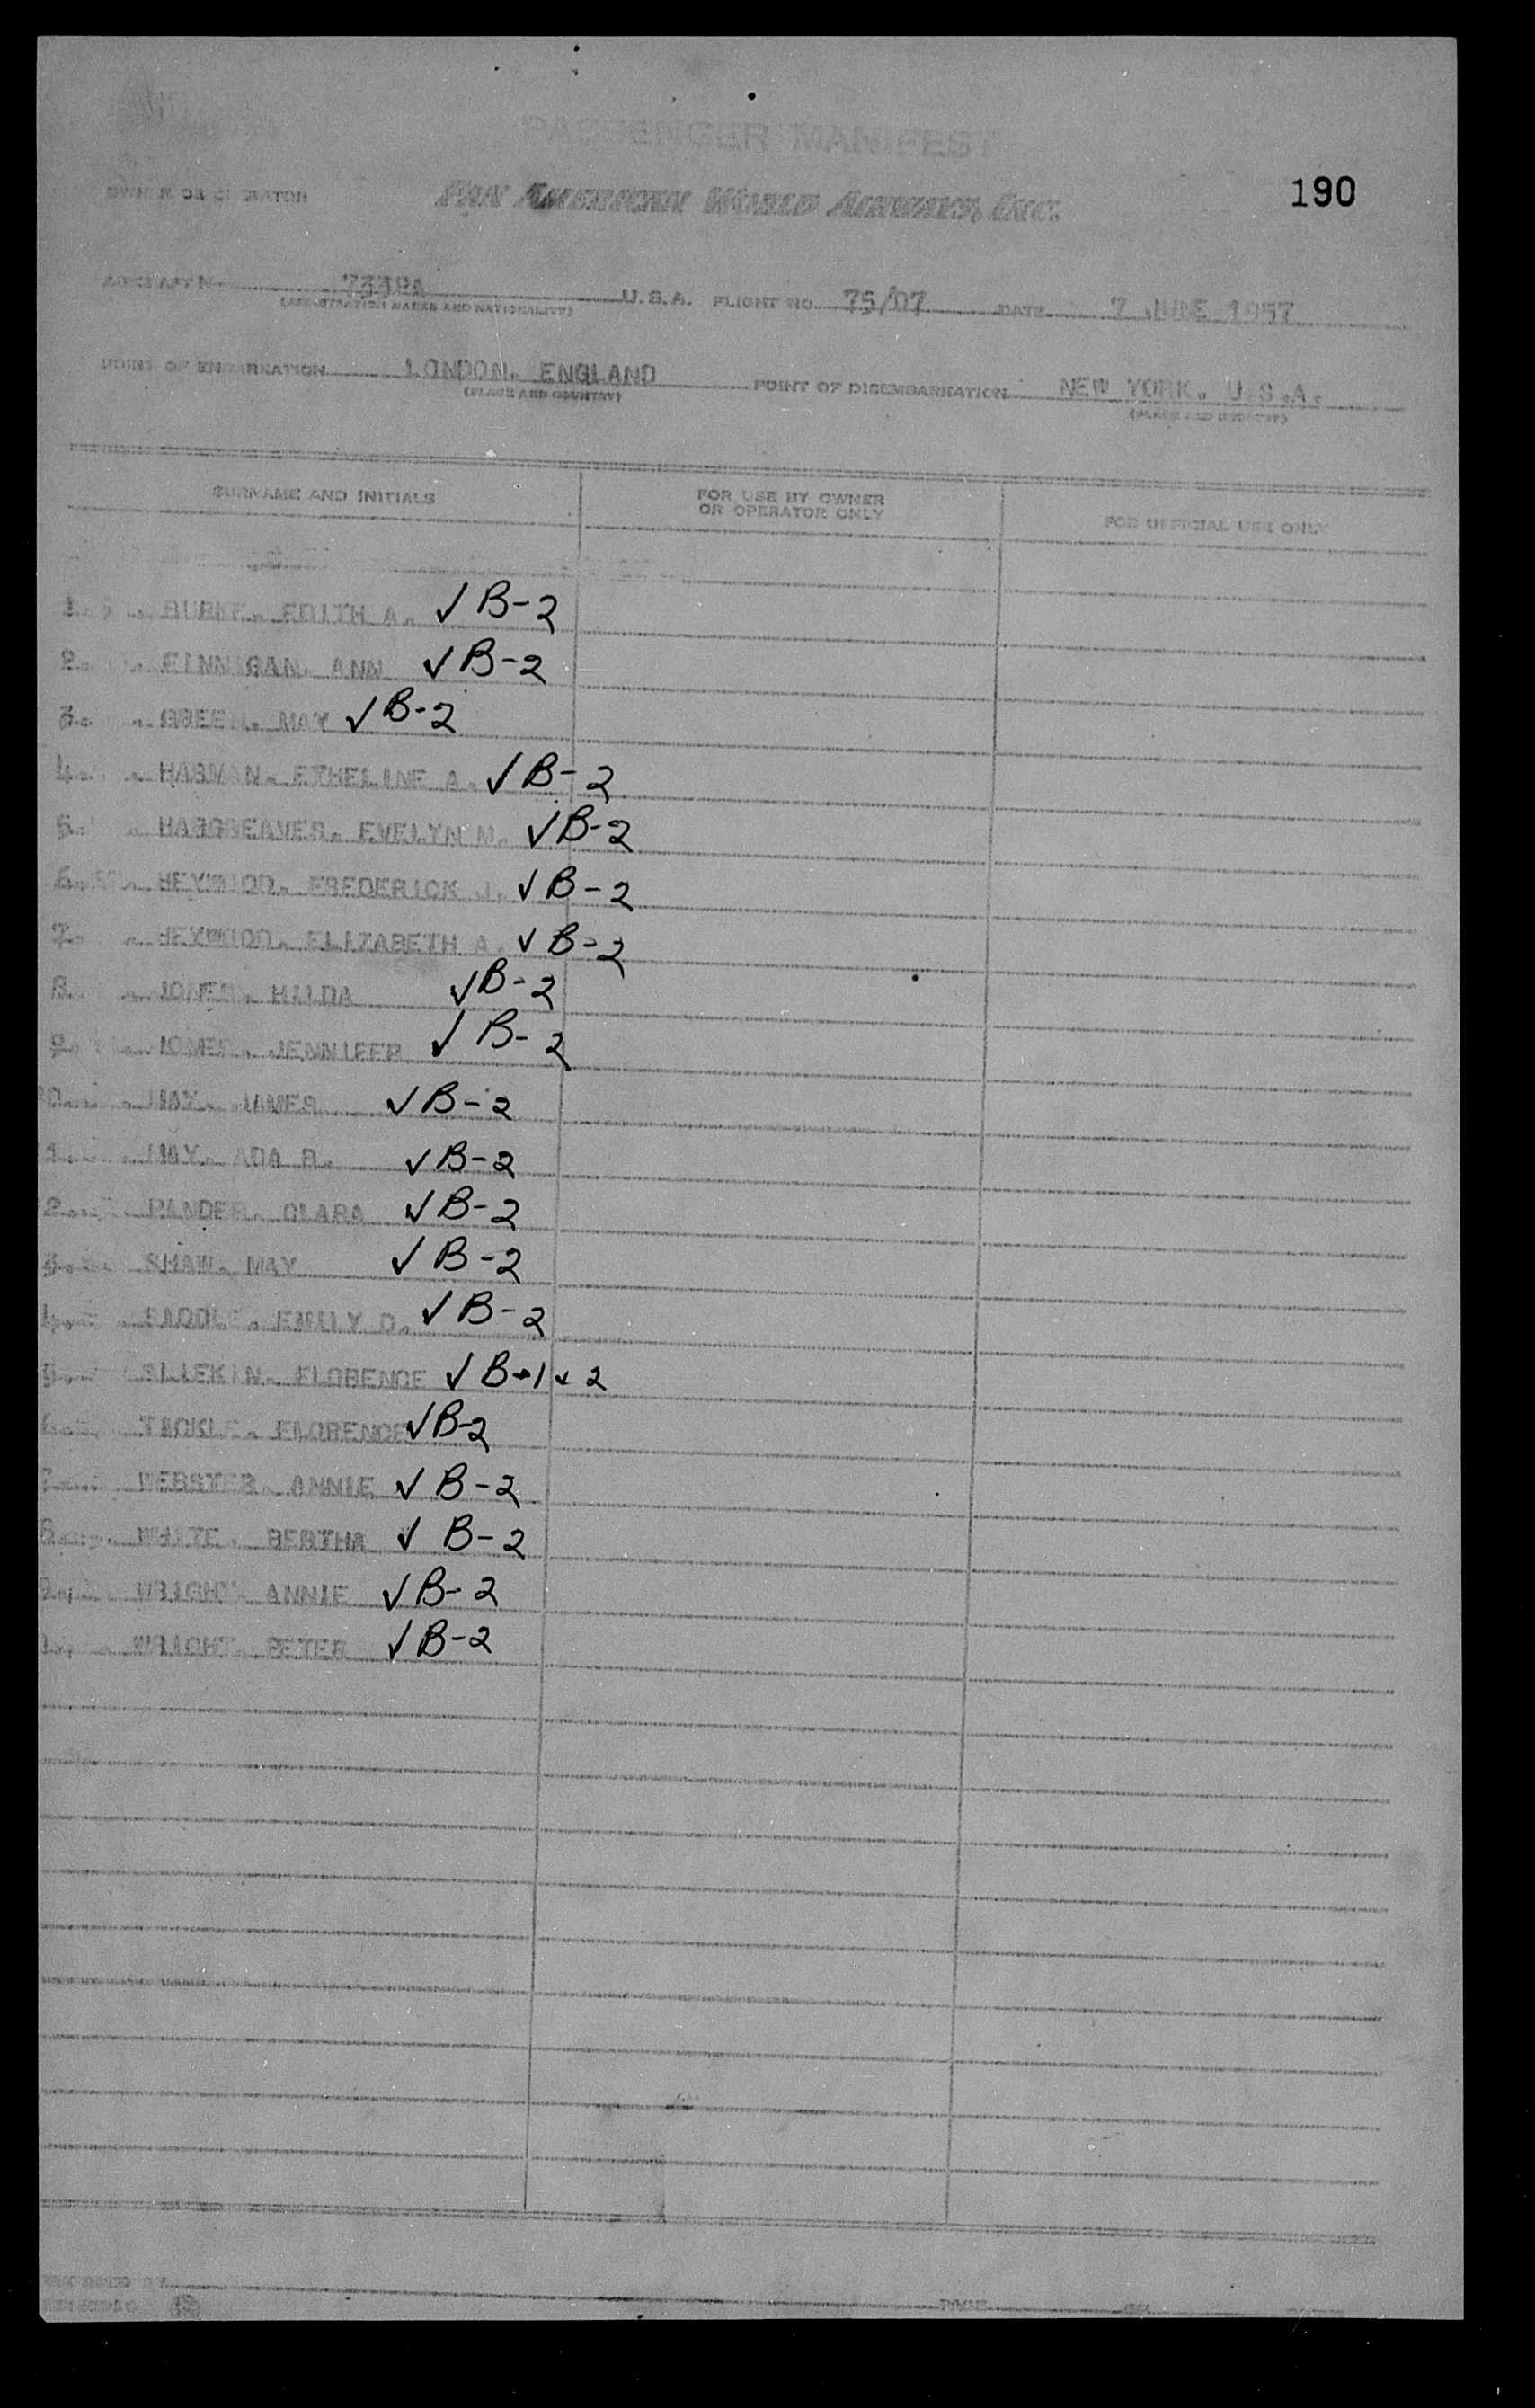 PASSENGER MANIFEST
OWNER OR OPERATOR PAN AMERICAN WORLD AIRWAYS, INC. 190
AIRCRAFT U.S.A. FLIGHT NO. 75/07 DATE 7 JUNE 1957
(REGISTRATION MARKS AND NATIONALITY)
POINT OF EMBARKATION LONDON, ENGLAND POINT OF DISEMBARKATION NEW YORK, U.S.A.
(PLACE AND COUNTRY) (PLACE AND COUNTRY)
SURNAME AND INITIALS FOR USE BY OWNER OR OPERATOR ONLY FOR OFFICIAL USE ONLY
1. EDITH A. ✓ B-2
2. FINNIGAN, ANN ✓ B-2
3. GREEN, MAY ✓ B-2
4. ETHELINE A. ✓ B-2
5. HARGREAVES, EVELYN M. ✓ B-2
6. HEYWOOD, FREDERICK J. ✓ B-2
7. HEYWOOD, ELIZABETH A. ✓ B-2
8. JONES, HILDA ✓ B-2
9. JONES, JENNIFER ✓ B-2
0. MAY, JAMES ✓ B-2
1. MAY, ADA ✓ B-2
2. CLARA ✓ B-2
3. SHAW, MAY ✓ B-2
4. EMILY D. ✓ B-2
5. FLORENCE ✓ B-1 & 2
6. TICKLE, FLORENCE ✓ B-2
7. WEBSTER, ANNIE ✓ B-2
8. WHITE, BERTHA ✓ B-2
9. WRIGHT, ANNIE ✓ B-2
WRIGHT, PETER ✓ B-2